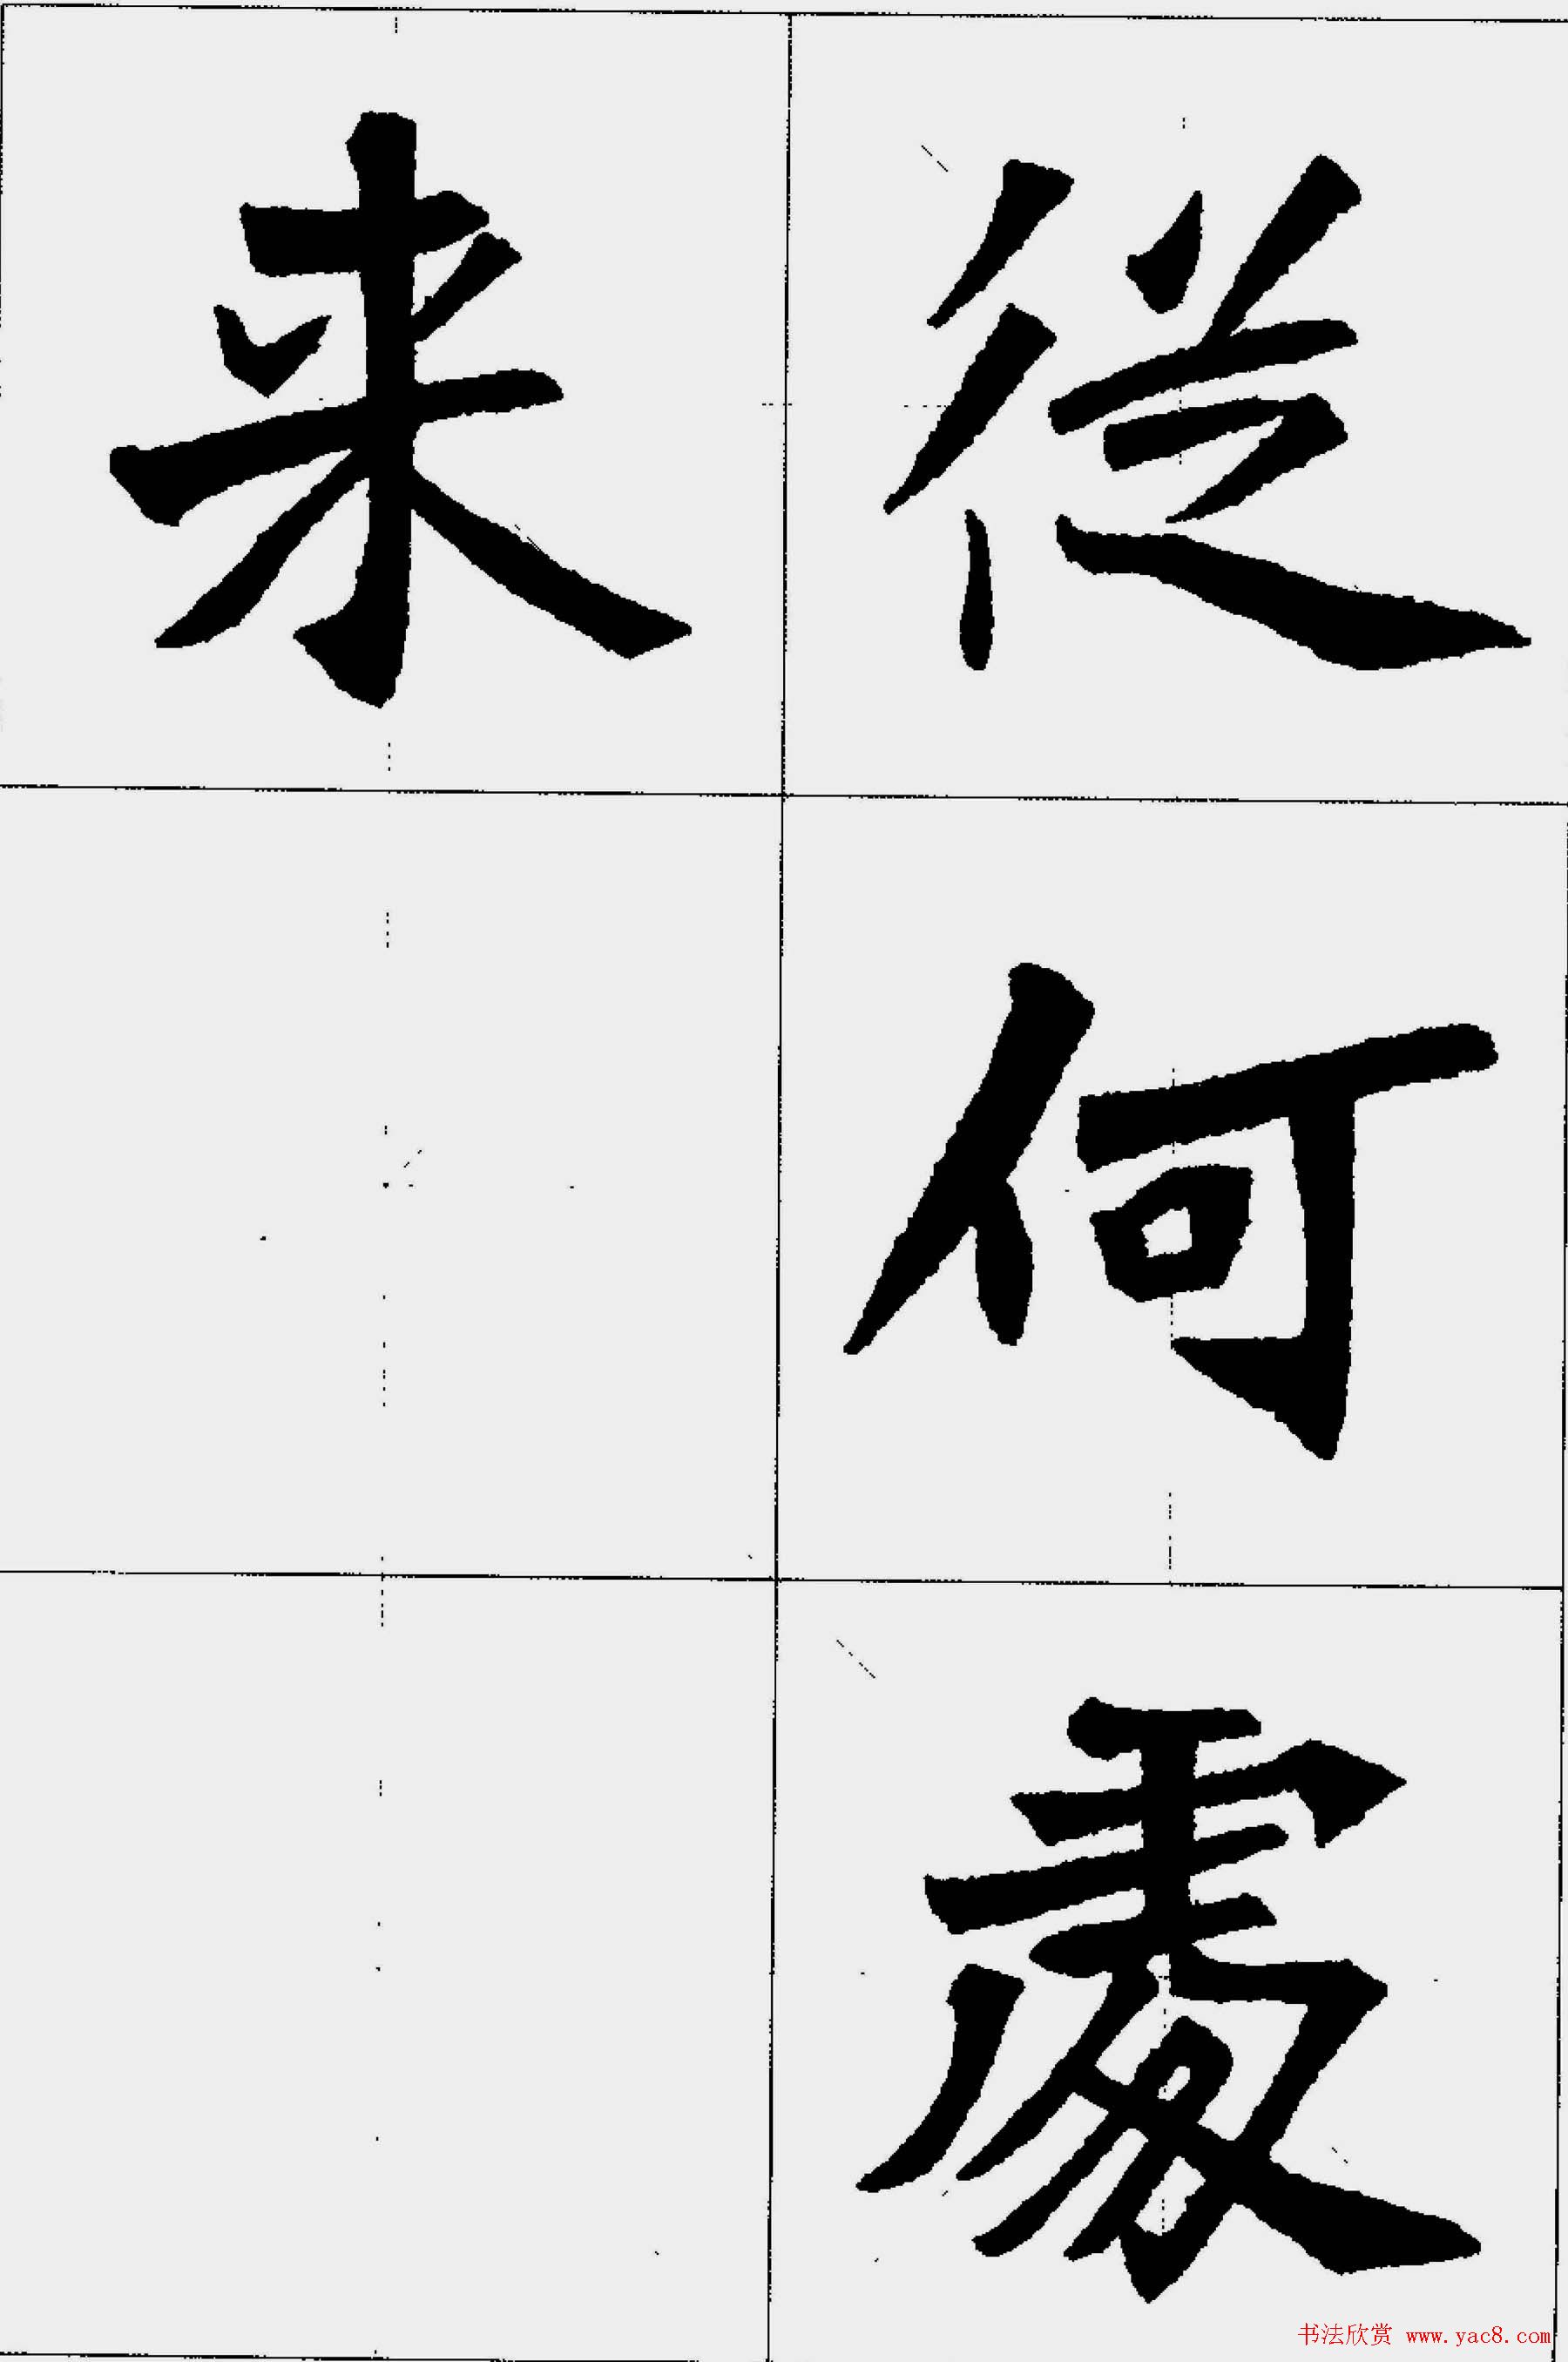 從何處
来
书法欣赏 www.yac8.com